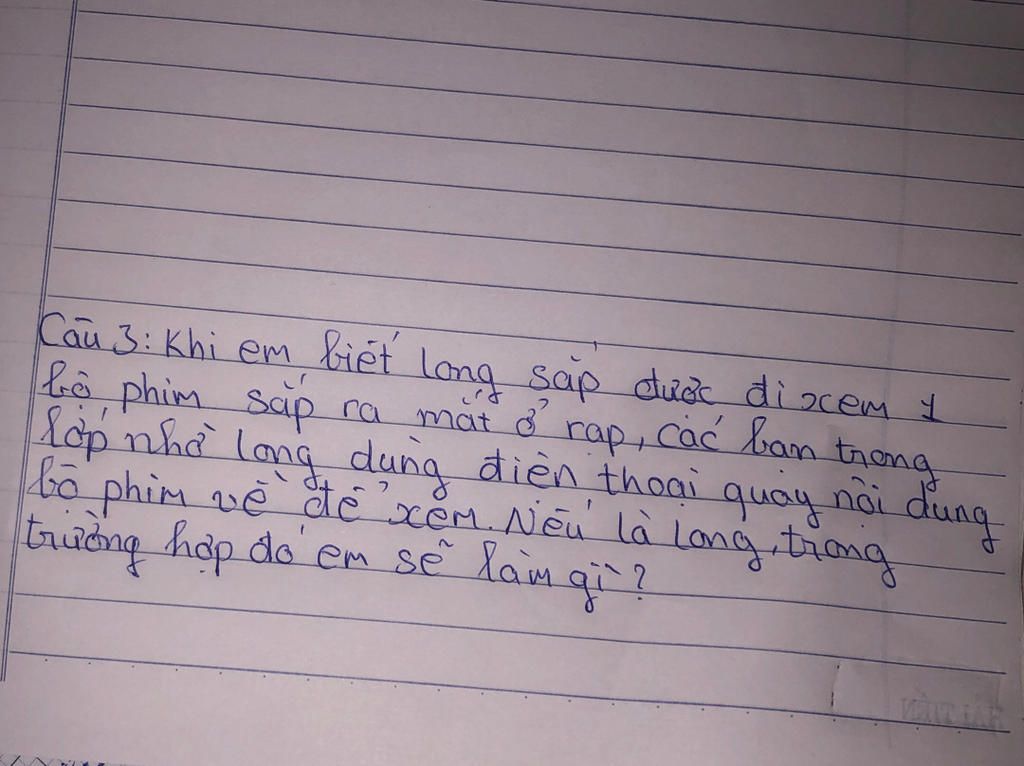 Câu 3: Khi em biết Long sắp được đi xem 1
bộ phim sắp ra mắt ở rạp, các bạn trong
lớp nhờ Long dùng điện thoại quay nội dung
bộ phim về để xem. Nếu là Long, trong
trường hợp đó em sẽ làm gì?